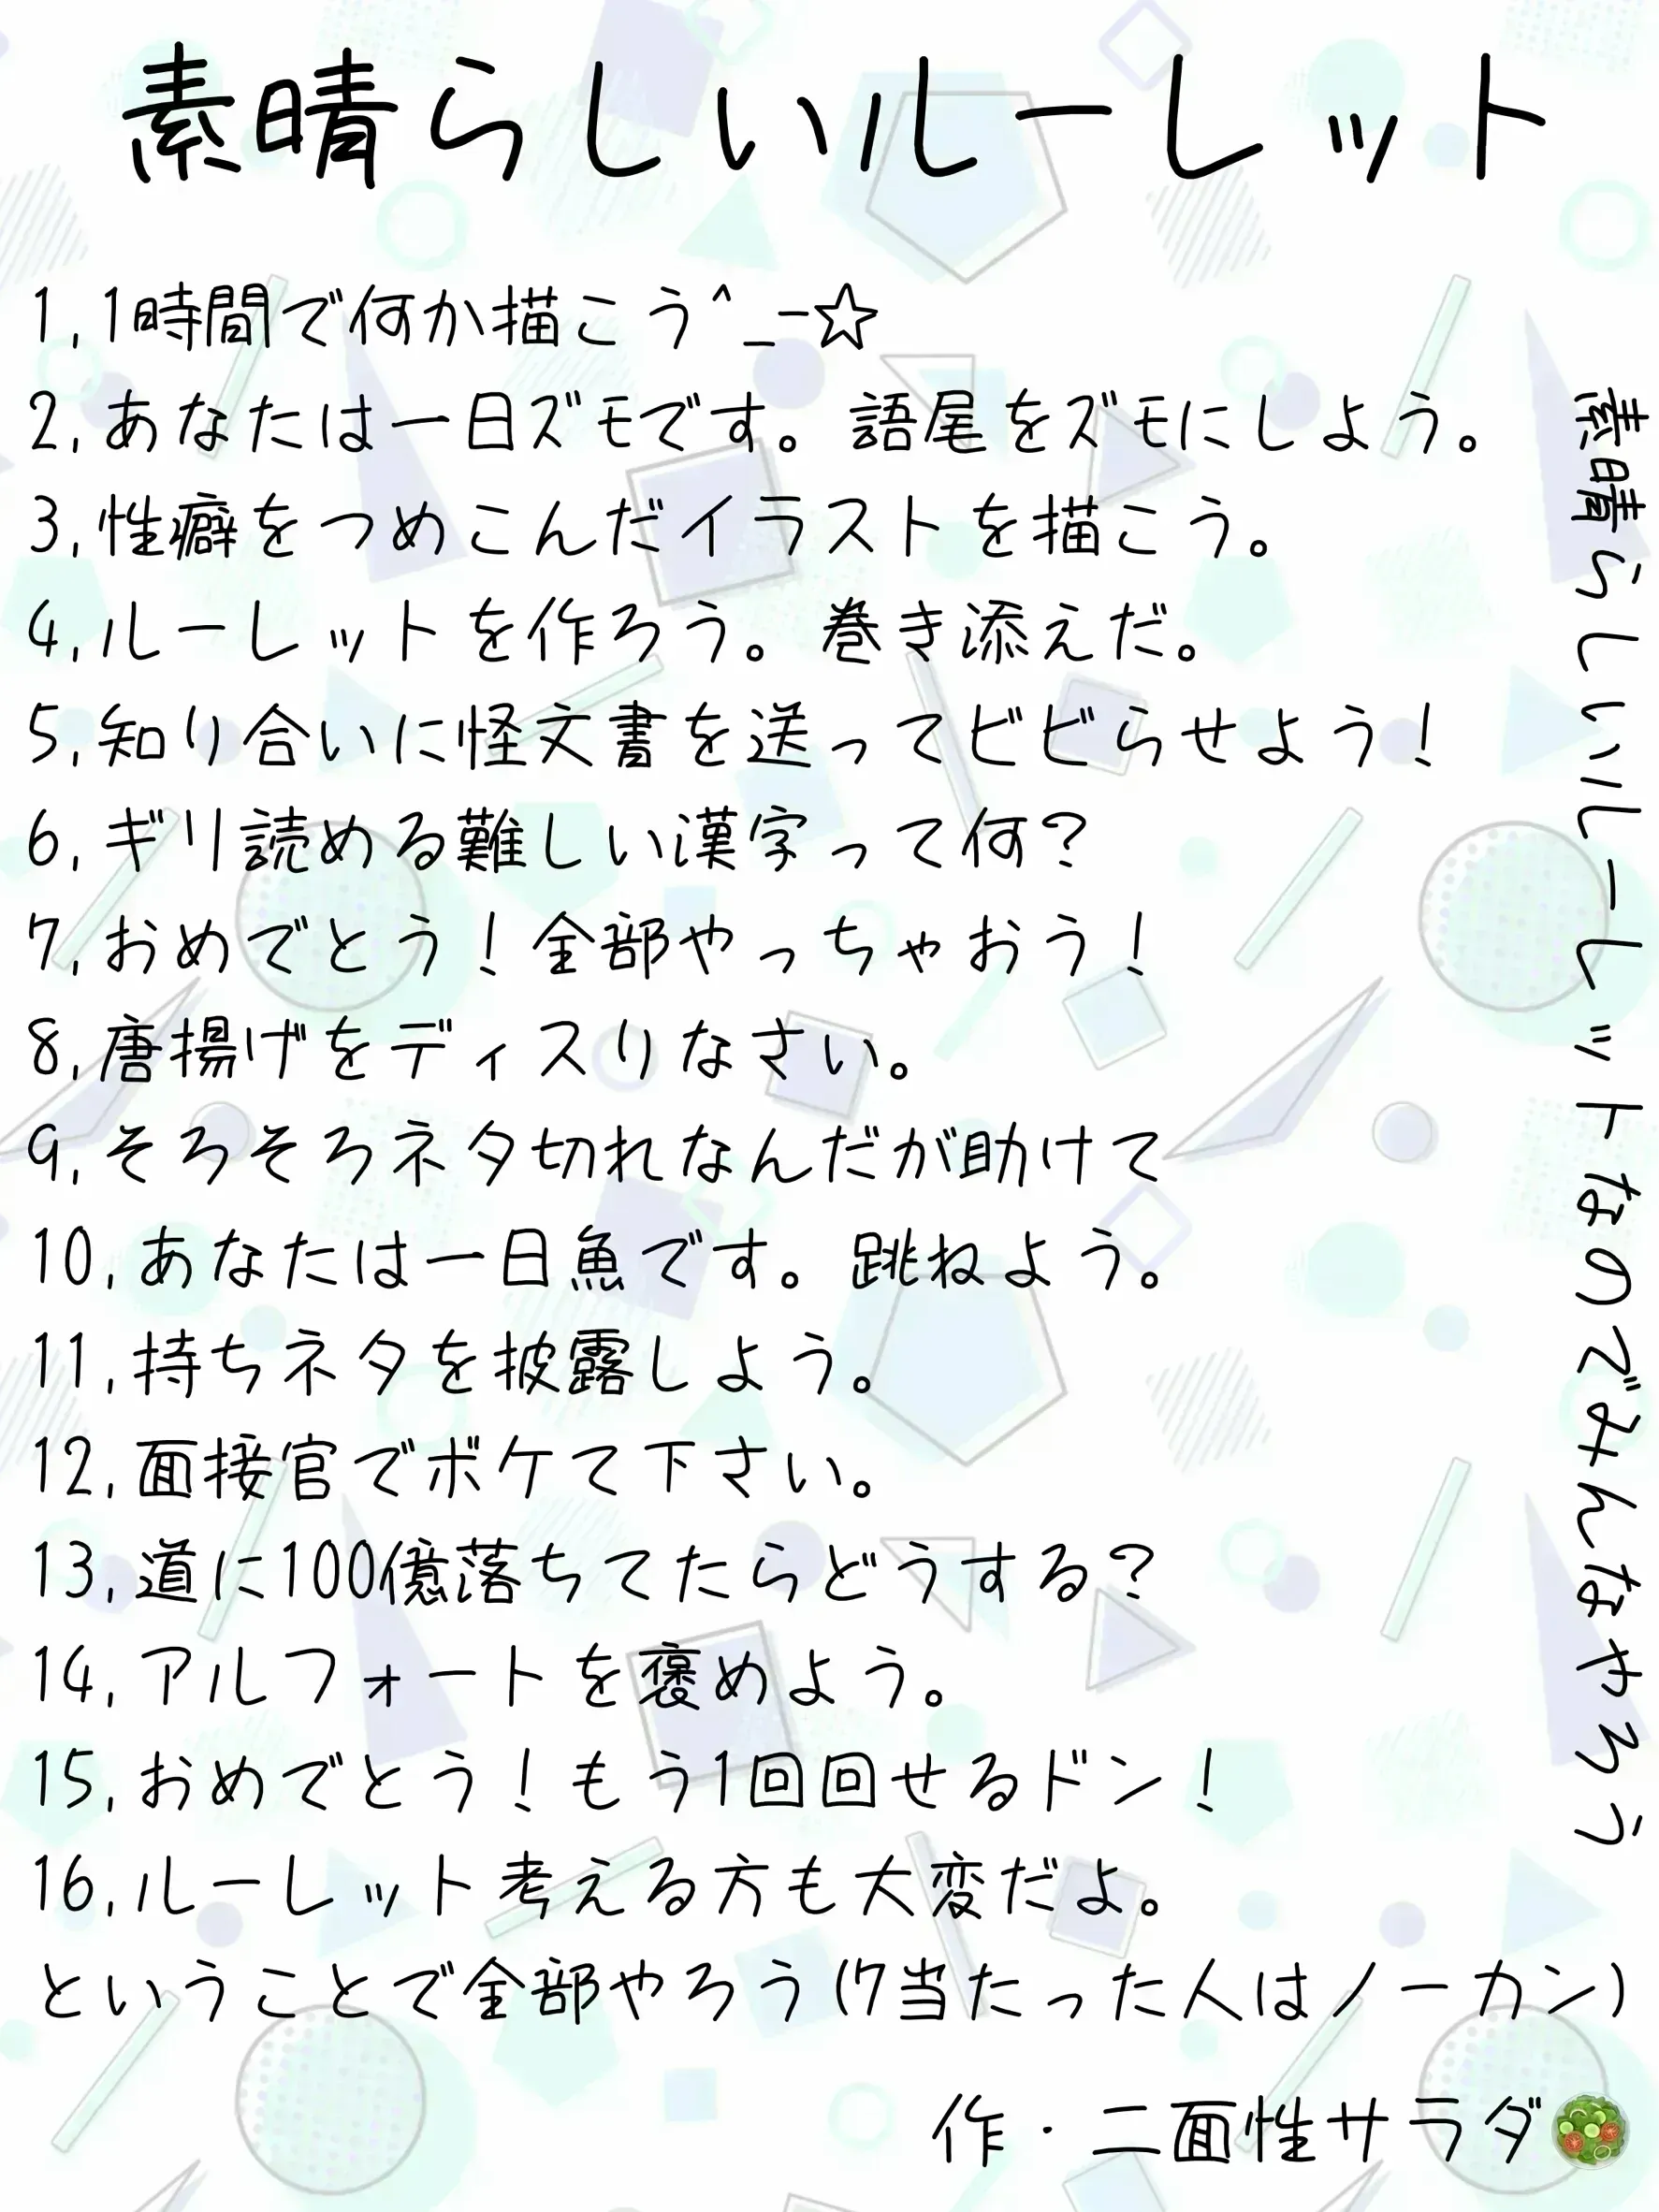 素晴らしいルーレット
1,1時間で何か描こう^_-☆
2,あなたは一日ズモです。語尾をズモにしよう。
3,性癖をつめこんだイラストを描こう。
4,ルーレットを作ろう。巻き添えだ。
5,知り合いに怪文書を送ってビビらせよう！
6,ギリ読める難しい漢字って何？
7,おめでとう！全部やっちゃおう！
8,唐揚げをディスりなさい。
9,そろそろネタ切れなんだが助けて
10,あなたは一日魚です。跳ねよう。
11,持ちネタを披露しよう。
12,面接官でボケて下さい。
13,道に100億落ちてたらどうする？
14,アルフォートを褒めよう。
15,おめでとう！もう1回回せるドン！
16,ルーレット考える方も大変だよ。
ということで全部やろう(7当たった人はノーカン)
作・二面性サラダ🥗
素晴らしいルーレットなのでみんなやろう